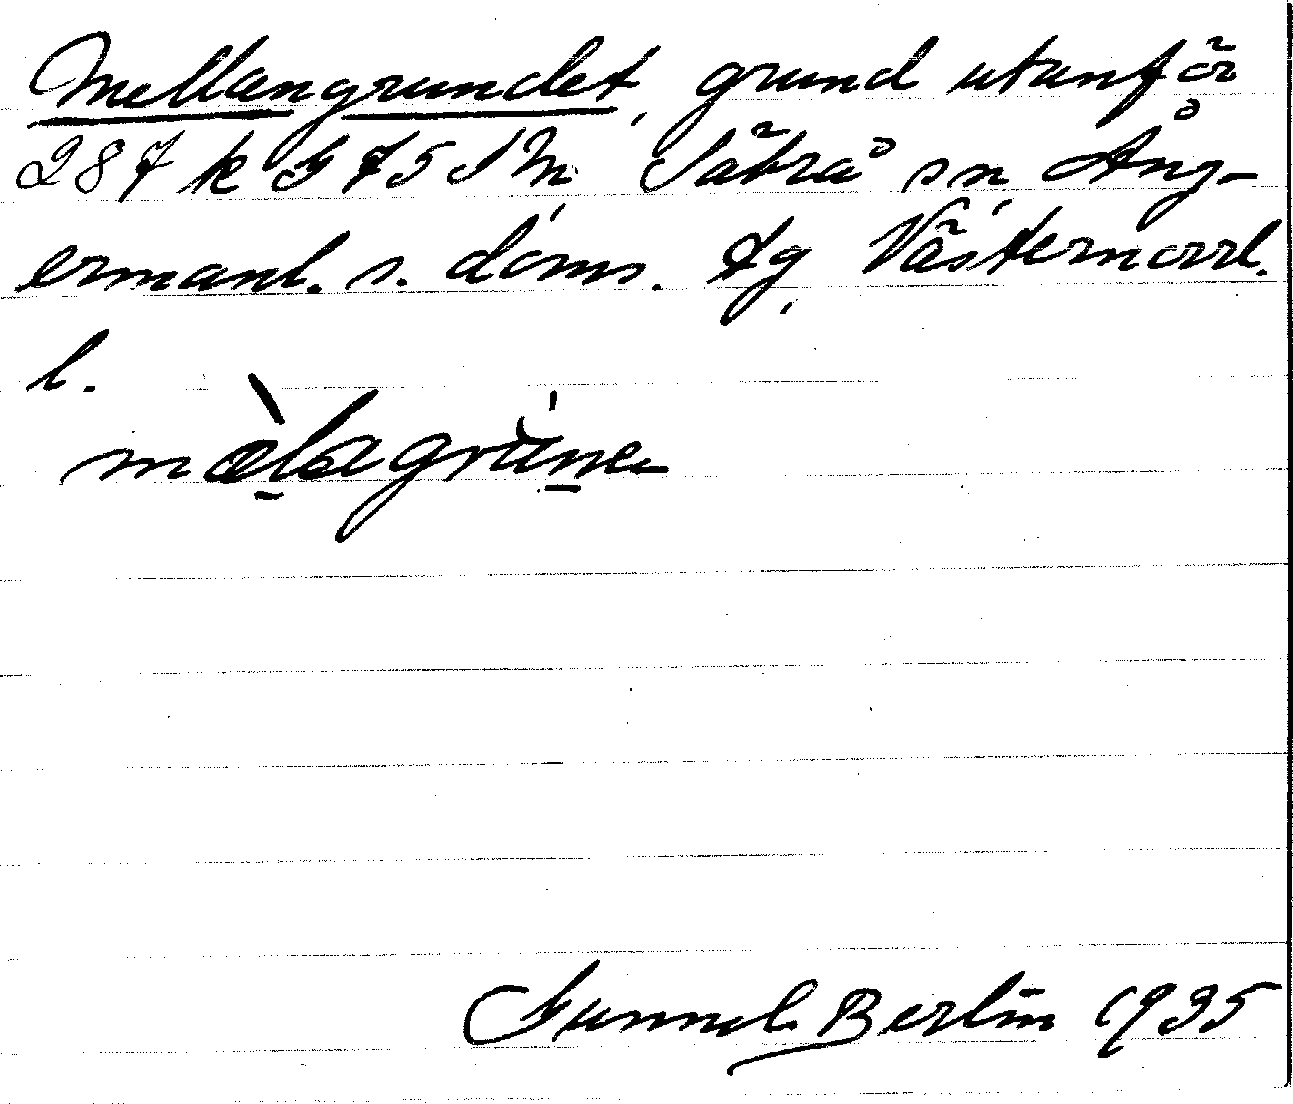 Mellangrundet, grund utanför
287 k G 75 Sm, Säbrå sn, Ång-
ermanl. s. doms. lg, Västernorrl.
l.
mòlagrúne
Gunnel Berlin 1935